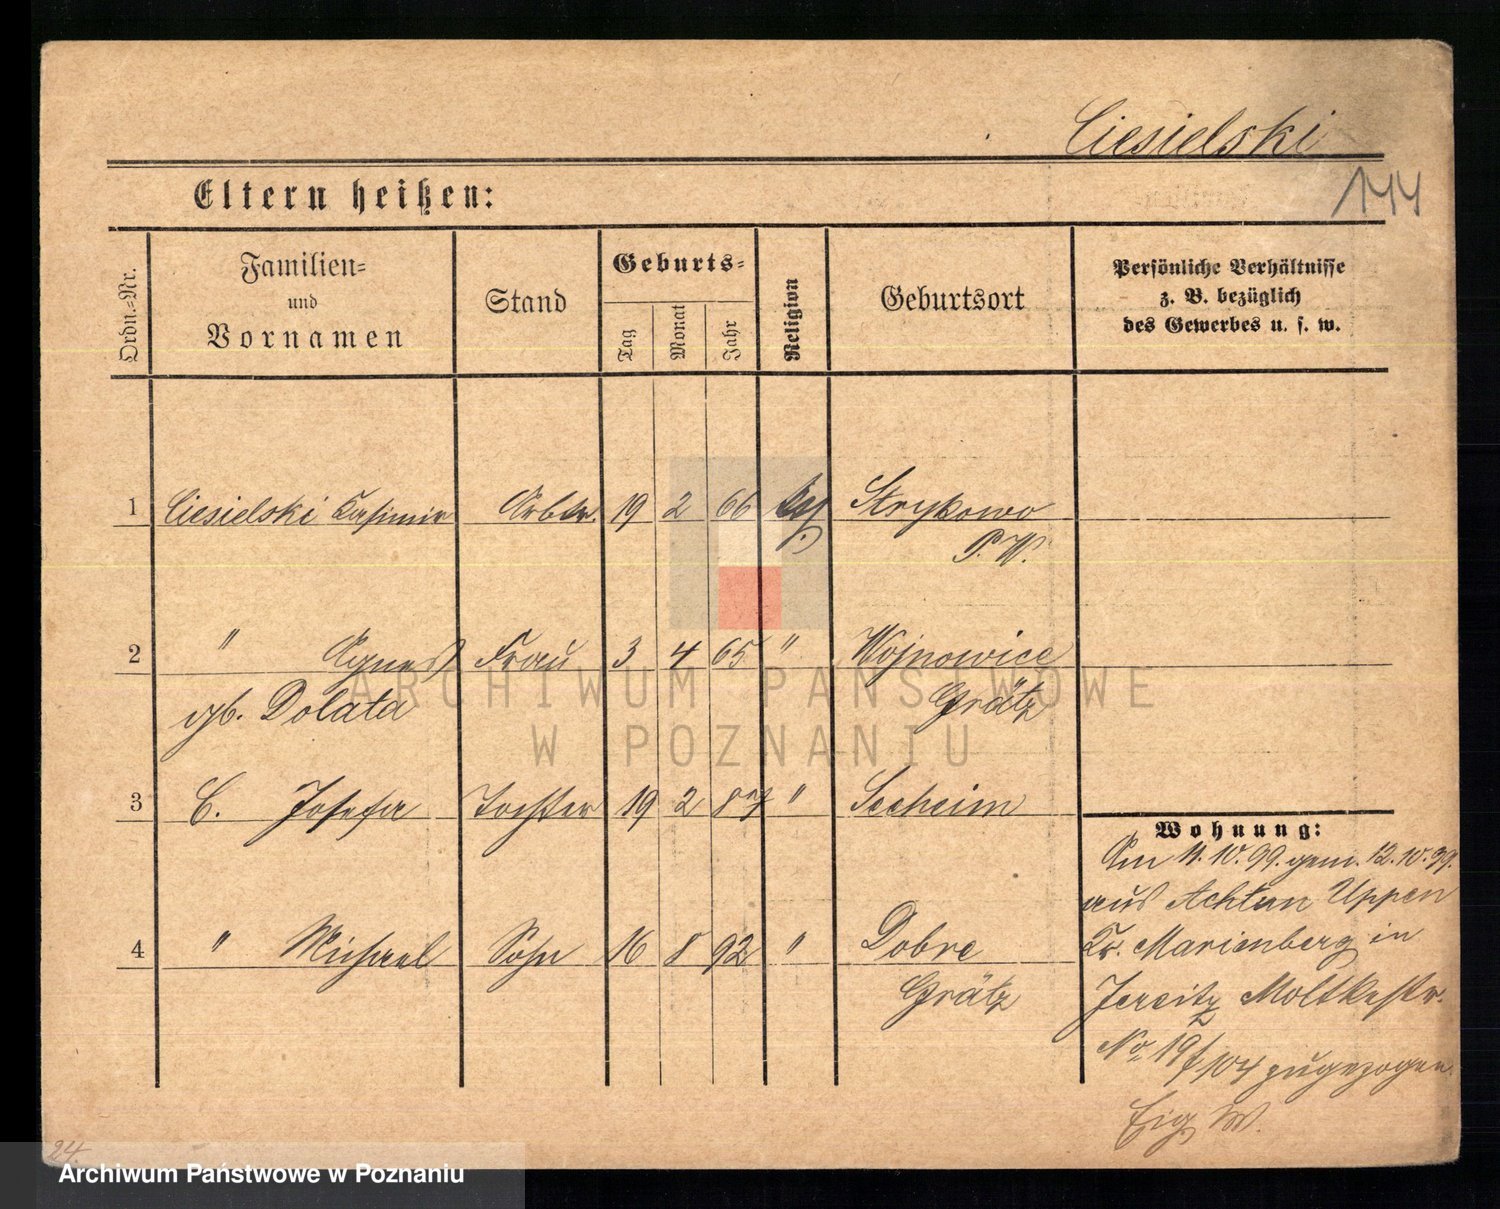 Ciesielski
144
Eltern heißen:
Ordn.=Nr.
Familien=
und
Vornamen
Stand
Geburts=
Tag
Monat
Jahr
Religion
Geburtsort
Persönliche Verhältnisse
z. B. bezüglich
des Gewerbes u. s. w.
1 Ciesielski Casimir Arbtr. 19 2 66 Strykowo
P. W.
2 " Agnes Frau 3 4 65 " Wojnowice
gb. Dolata Grätz
3 C. Josefa Tochter 19 2 87 " Seeheim
4 " Michael Sohn 16 8 92 " Dobre
Grätz
Wohnung:
Am 11.10.99. gem. 12.10.99.
aus Achtum Uppen
Kr. Marienberg in
Jersitz Moltkestr.
No. 19/104 zugezogen.
24.
ARCHIWUM PAŃSTWOWE
W POZNANIU
Archiwum Państwowe w Poznaniu